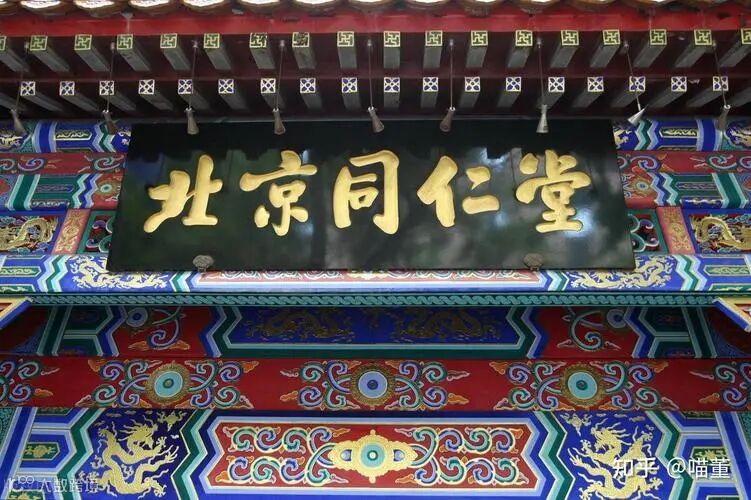 北京同仁堂
知乎 @喵董
大数跨境